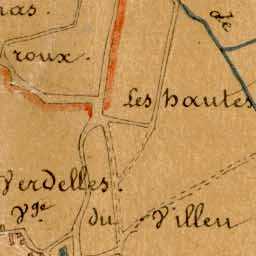 nas.
de
roux.
Les hautes
Verdelles.
Vge du Villeu